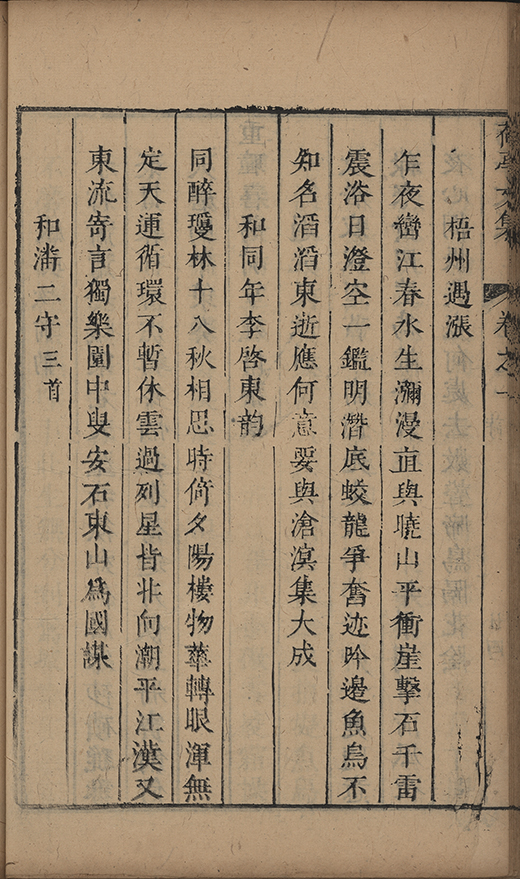 文集 卷之一
梧州遇漲
乍夜巒江春水生瀰漫直與曉山平衝崖擊石千雷
震浴日澄空一鑑明潛底蛟龍爭奮迹吟邊魚鳥不
知名滔滔東逝應何意要與滄溟集大成
和同年李啓東韵
同醉瓊林十八秋相思時倚夕陽樓物華轉眼渾無
定天運循環不暫休雲過列星皆北向潮平江漢又
東流寄言獨樂園中叟安石東山為國謀
和潘二守三首